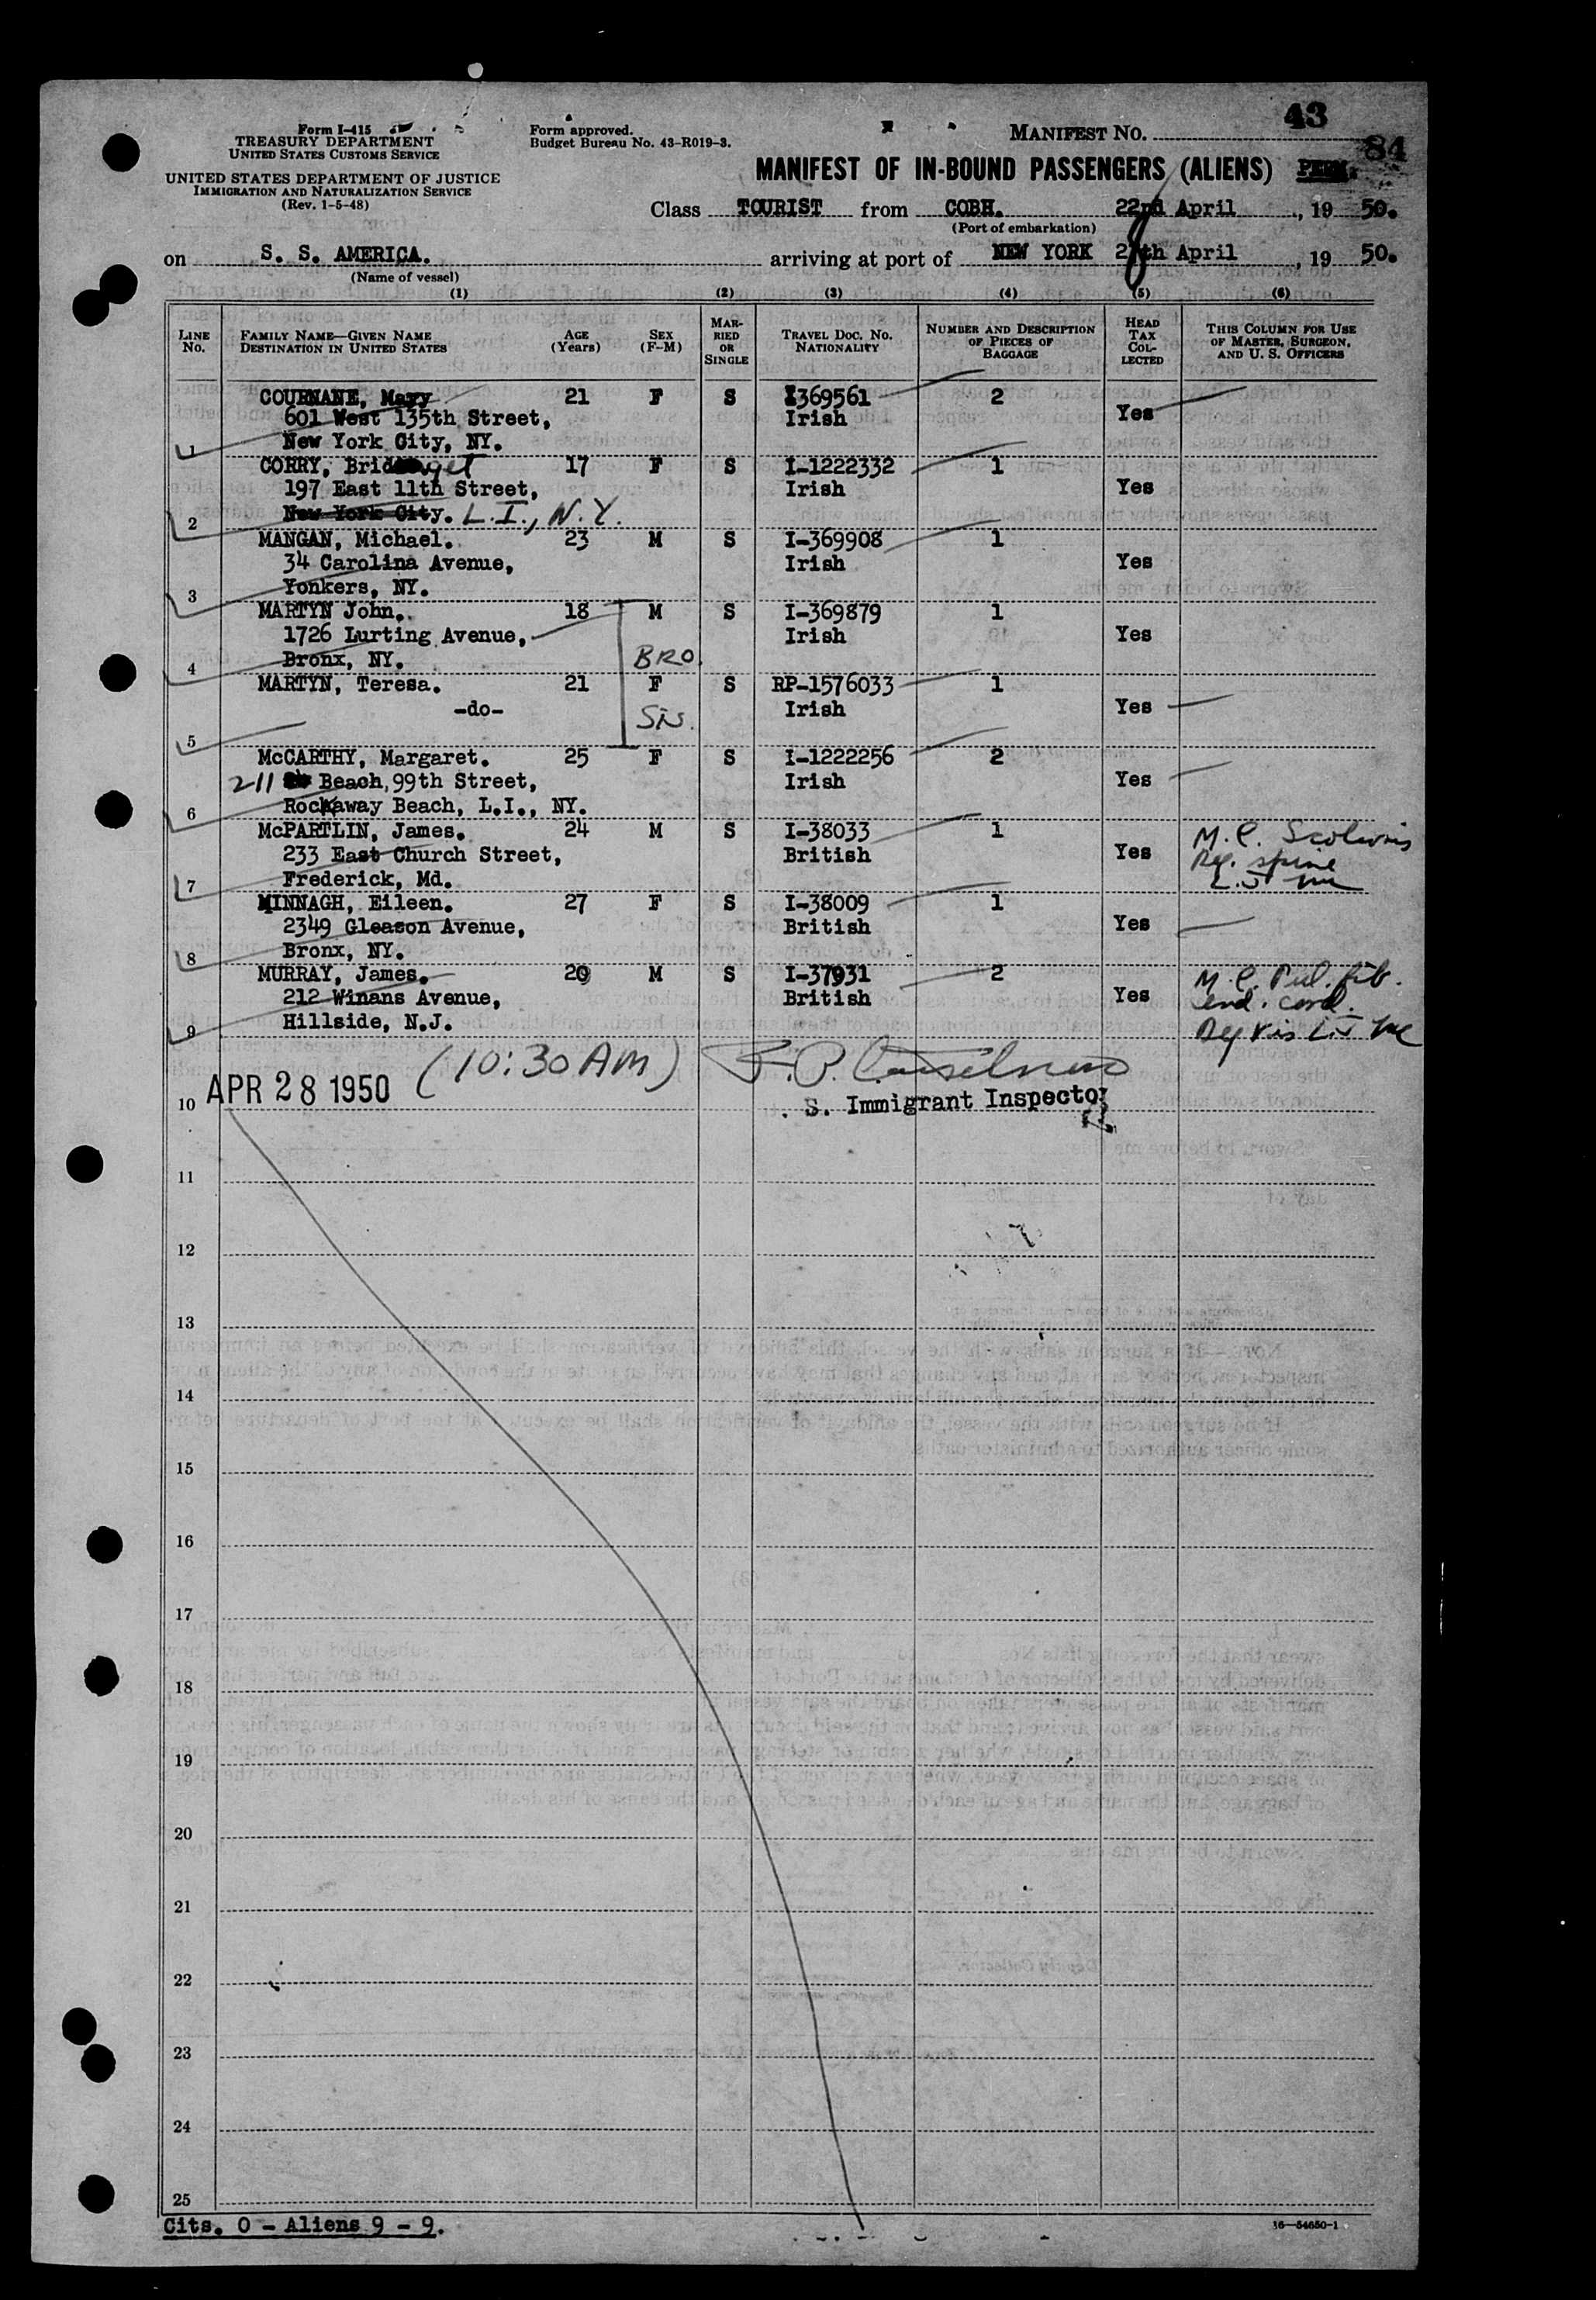 43
84
Form I-415
TREASURY DEPARTMENT
UNITED STATES CUSTOMS SERVICE
UNITED STATES DEPARTMENT OF JUSTICE
IMMIGRATION AND NATURALIZATION SERVICE
(Rev. 1-5-48)
Form approved.
Budget Bureau No. 43-R019-3.
MANIFEST NO.
MANIFEST OF IN-BOUND PASSENGERS (ALIENS)
Class TOURIST from COBH. 22nd April, 19 50.
(Port of embarkation)
on S. S. AMERICA. arriving at port of NEW YORK 28th April, 19 50.
(Name of vessel)
(1) (2) (3) (4) (5) (6)
LINE No. FAMILY NAME—GIVEN NAME DESTINATION IN UNITED STATES AGE (Years) SEX (F-M) MARRIED OR SINGLE TRAVEL DOC. NO. NATIONALITY NUMBER AND DESCRIPTION OF PIECES OF BAGGAGE HEAD TAX COLLECTED THIS COLUMN FOR USE OF MASTER, SURGEON, AND U. S. OFFICERS
COURNANE, Mary 21 F S I369561 2
601 West 135th Street, Irish Yes
1 New York City, NY.
CORRY, Bridget 17 F S I-1222332 1
197 East 11th Street, Irish Yes
2 New York City. L.I., N.Y.
MANGAN, Michael. 23 M S I-369908 1
34 Carolina Avenue, Irish Yes
3 Yonkers, NY.
MARTYN John. 18 M S I-369879 1
1726 Lurting Avenue, Irish Yes
4 Bronx, NY. BRO.
MARTYN, Teresa. 21 F S RP-1576033 1
-do- Sis. Irish Yes
5
McCARTHY, Margaret. 25 F S I-1222256 2
211 Beach, 99th Street, Irish Yes
6 Rockaway Beach, L.I., NY.
McPARTLIN, James. 24 M S I-38033 1 M.C.
233 East Church Street, British Yes spine
7 Frederick, Md.
MINNAGH, Eileen. 27 F S I-38009 1
2349 Gleason Avenue, British Yes
8 Bronx, NY.
MURRAY, James. 20 M S I-37931 2 M.C. Pul. fib.
212 Winans Avenue, British Yes
9 Hillside, N.J.
10 APR 28 1950 (10:30 AM)
S. Immigrant Inspector
11
12
13
14
15
16
17
18
19
20
21
22
23
24
25
Cits. 0 - Aliens 9 - 9.
16—54650-1